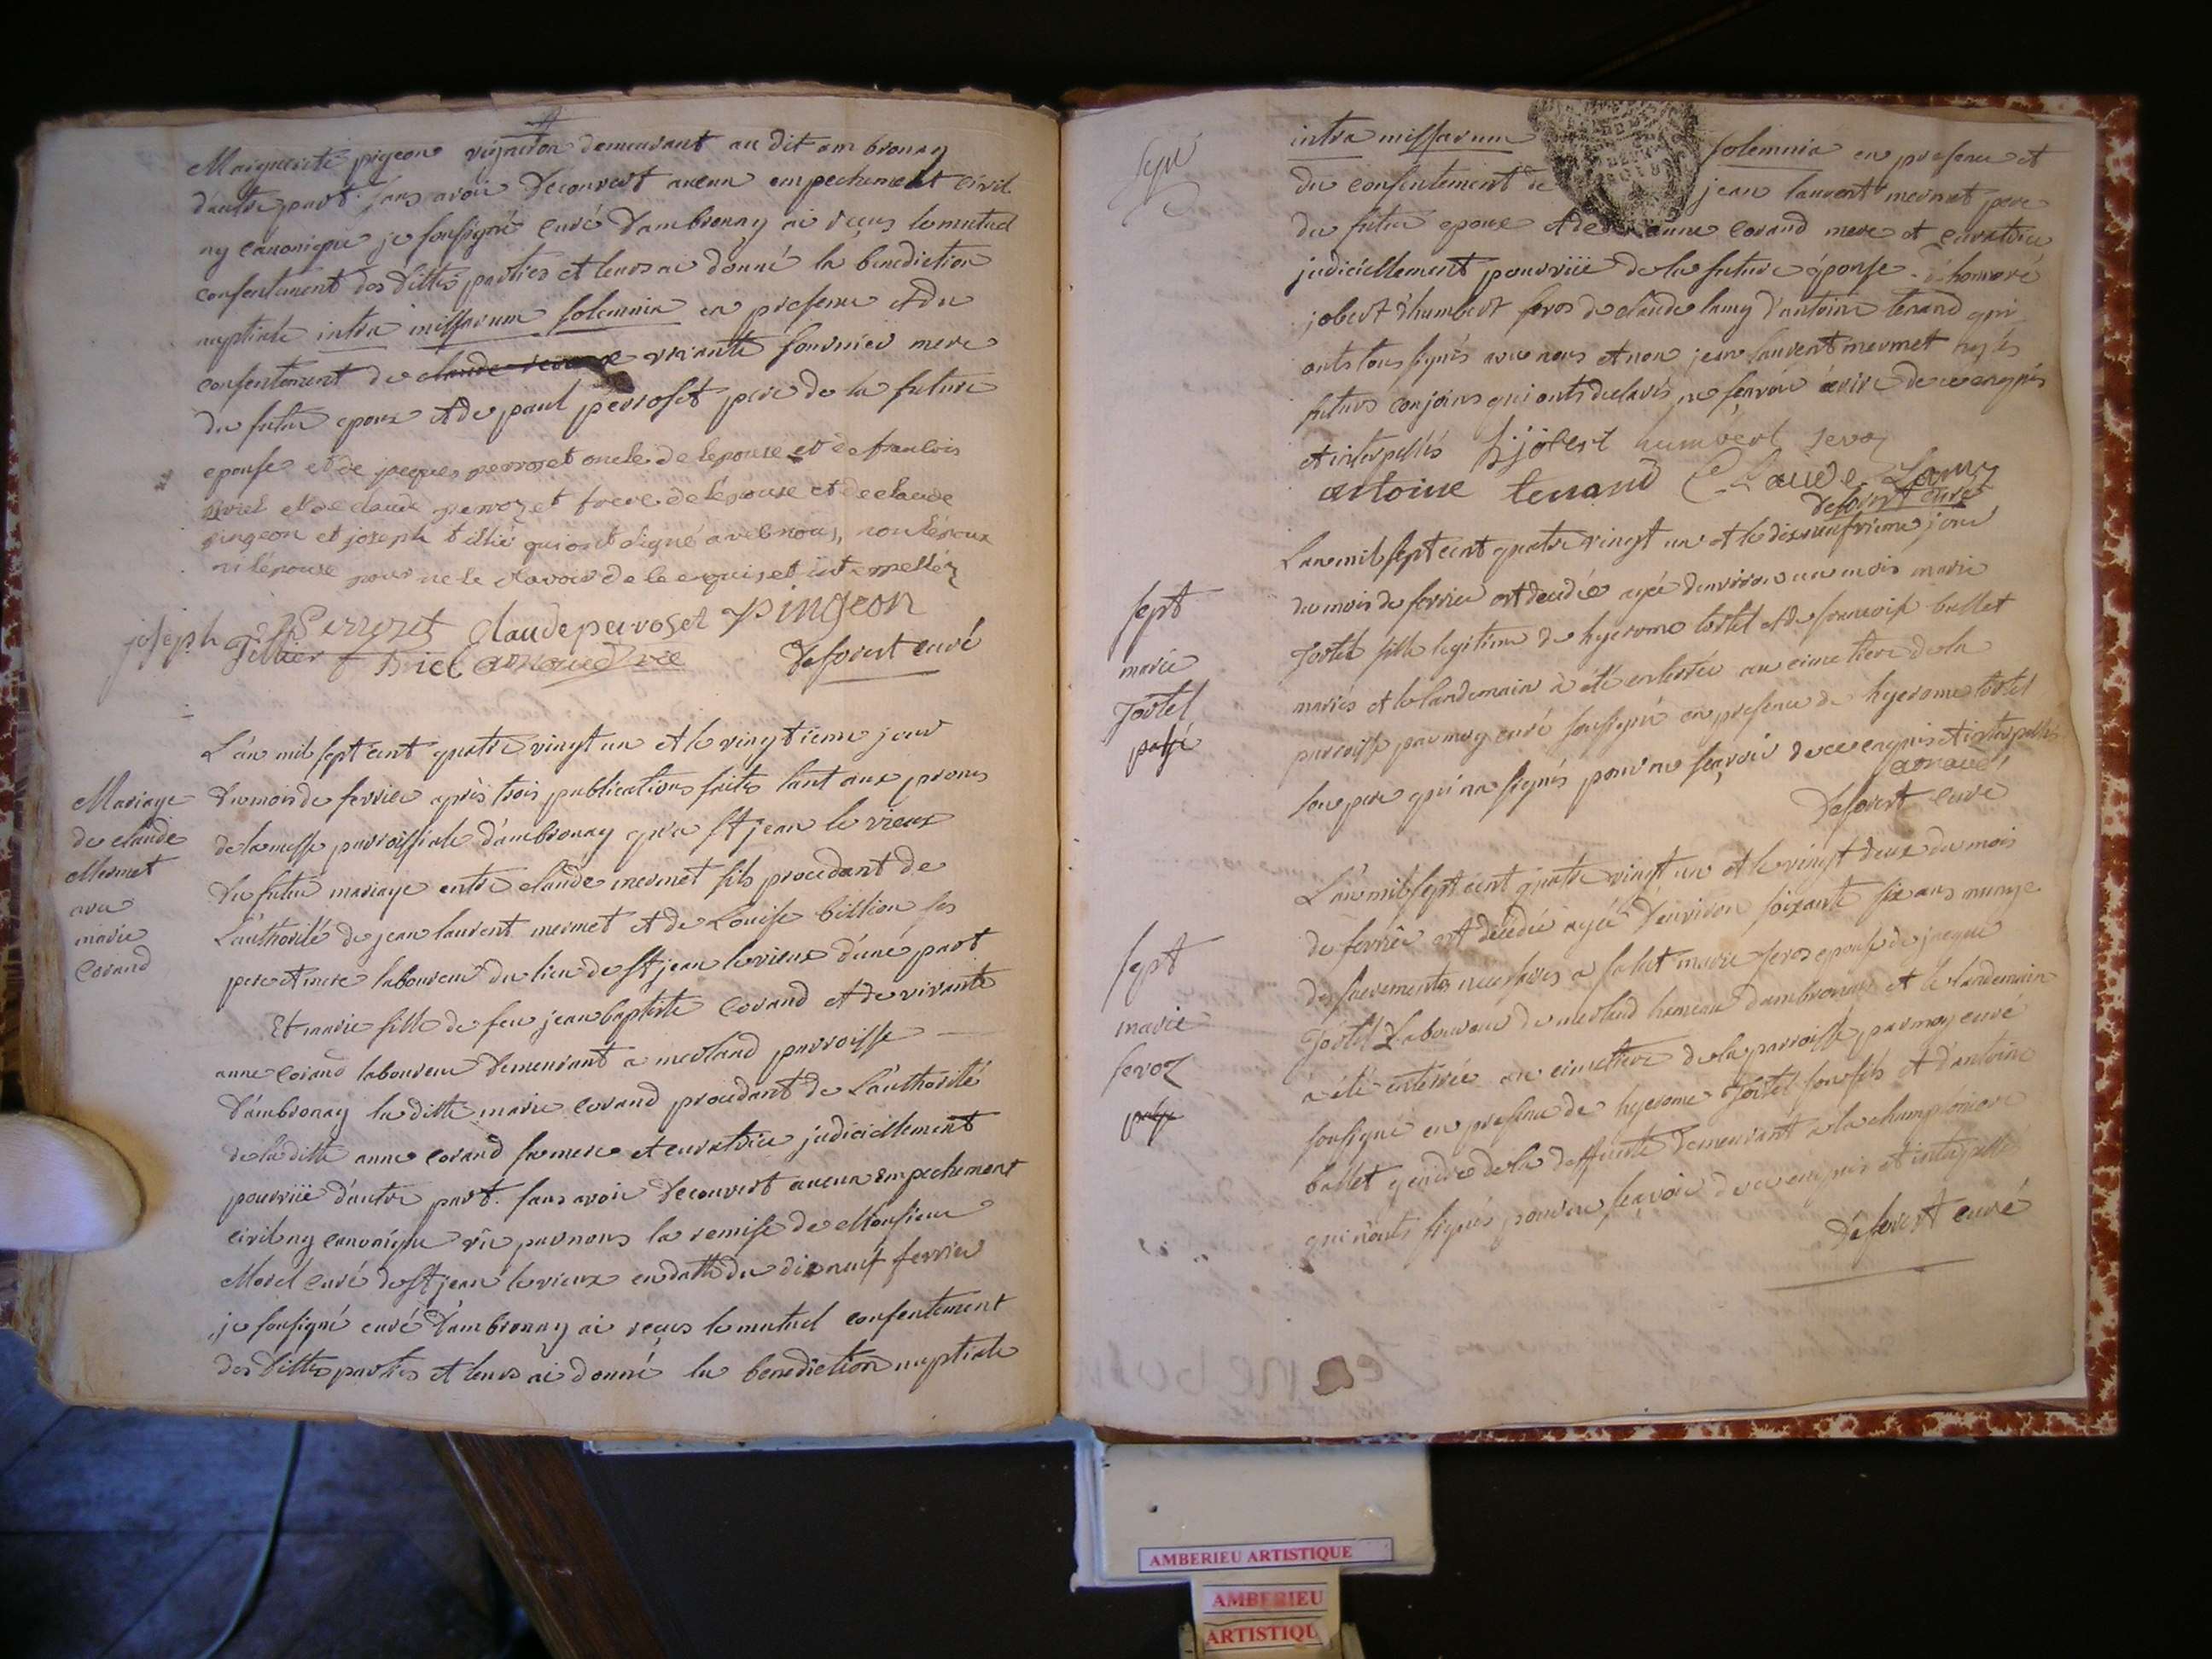 Marguerite pigeon vigneron demeurant au dit ambronay
d'autre part. sans avoir decouvert aucun empechement civil
ny canonique je soussigné curé d'ambronay ai recus le mutuel
consentement des dittes parties et leurs ai donné la benediction
nuptiale intra missarum solemnia en presence et du
consentement de vivante fournier mere
du futur epoux et de paul perroset pere de la future
epouse et de jacques perrozet oncle de lepouse et de francois
briel et de claude perrozet frere de lepouse et de claude
pingeon et joseph tillié qui ont signé avec nous, non lépoux
ni lépouse pour ne le scavoir de ce enquis et interpelléz
joseph Tillier Perrozet Claude perroset Pingeon
f Briel arnaud vic deforest curé
Mariage
de claude
Mermet
avec
marie
Corand
L'an mil sept cent quatre vingt un et le vingtieme jour
du mois de fevrier après trois publications faites tant aux prones
de la messe parroissiale d'ambronay qu'a St jean le vieux
du futur mariage entre claude mermet fils procedant de
L'authorité de jean laurent mermet et de Louise billion ses
pere et mere laboureur du lieu de St jean le vieux d'une part
Et marie fille de feu jean baptiste Corand et de vivante
anne Corand laboureur demeurant a merland parroisse
d'ambronay la ditte marie corand procedant de L'authorité
de la ditte anne corand sa mere et curatrice judiciellement
pourvüe d'autre part. sans avoir decouvert aucun empechement
civil ny canonique vü par nous la remise de Monsieur
Morel curé de St jean le vieux en datte du dix neuf fevrier
je soussigné curé d'ambronay ai reçus le mutuel consentement
des dittes parties et leurs ai donné la benediction nuptiale
intra missarum solemnia en presence et
du consentement de jean laurent mermet pere
du futur epoux et de anne Corand mere et curatrice
judiciellement pourvüe de la future épouse. d'honoré
jobert d'humbert feros de claude lamy d'antoine tenand qui
onts tous signés avec nous et non jean laurent mermet ny les
futurs conjoins qui onts declarés ne sçavoir ecrire de ce enquis
et interpellés h jobert humbert fevoz
antoine tenand Claude Lamy
deforest curé
sept
marie
Tortel
payé
L'an mil sept cent quatre vingt un et le dix neufvieme jour
du mois de fevrier est decedée agée d'environ un mois marie
Tortel fille legitime de hyerome tortel et de francoise ballet
mariés et le landemain à été enterrée au cimetiere de la
parroisse par moy curé soussigné en presence de hyerome tortel
son pere qui n'a signés pour ne sçavoir de ce enquis et interpellés
arnaud,
deforest curé
sept
marie
fevoz
payé
L'an mil sept cent quatre vingt un et le vingt deux du mois
de fevrier est decedée agée d'environ soixante six ans munye
des sacrements necessaires a salut marie feros epouse de jacque
Tortel Laboureur de merland hameau d'ambronay et le landemain
a été enterrée au cimetiere de la parroisse par moy curé
soussigné en presence de hyerome Tortel son fils et d'antoine
ballet gendre de la deffunte demeurant a la championiere
qui n'onts signés pour ne sçavoir de ce enquis et interpellé
deforest curé
AMBERIEU ARTISTIQUE
AMBERIEU
ARTISTIQU